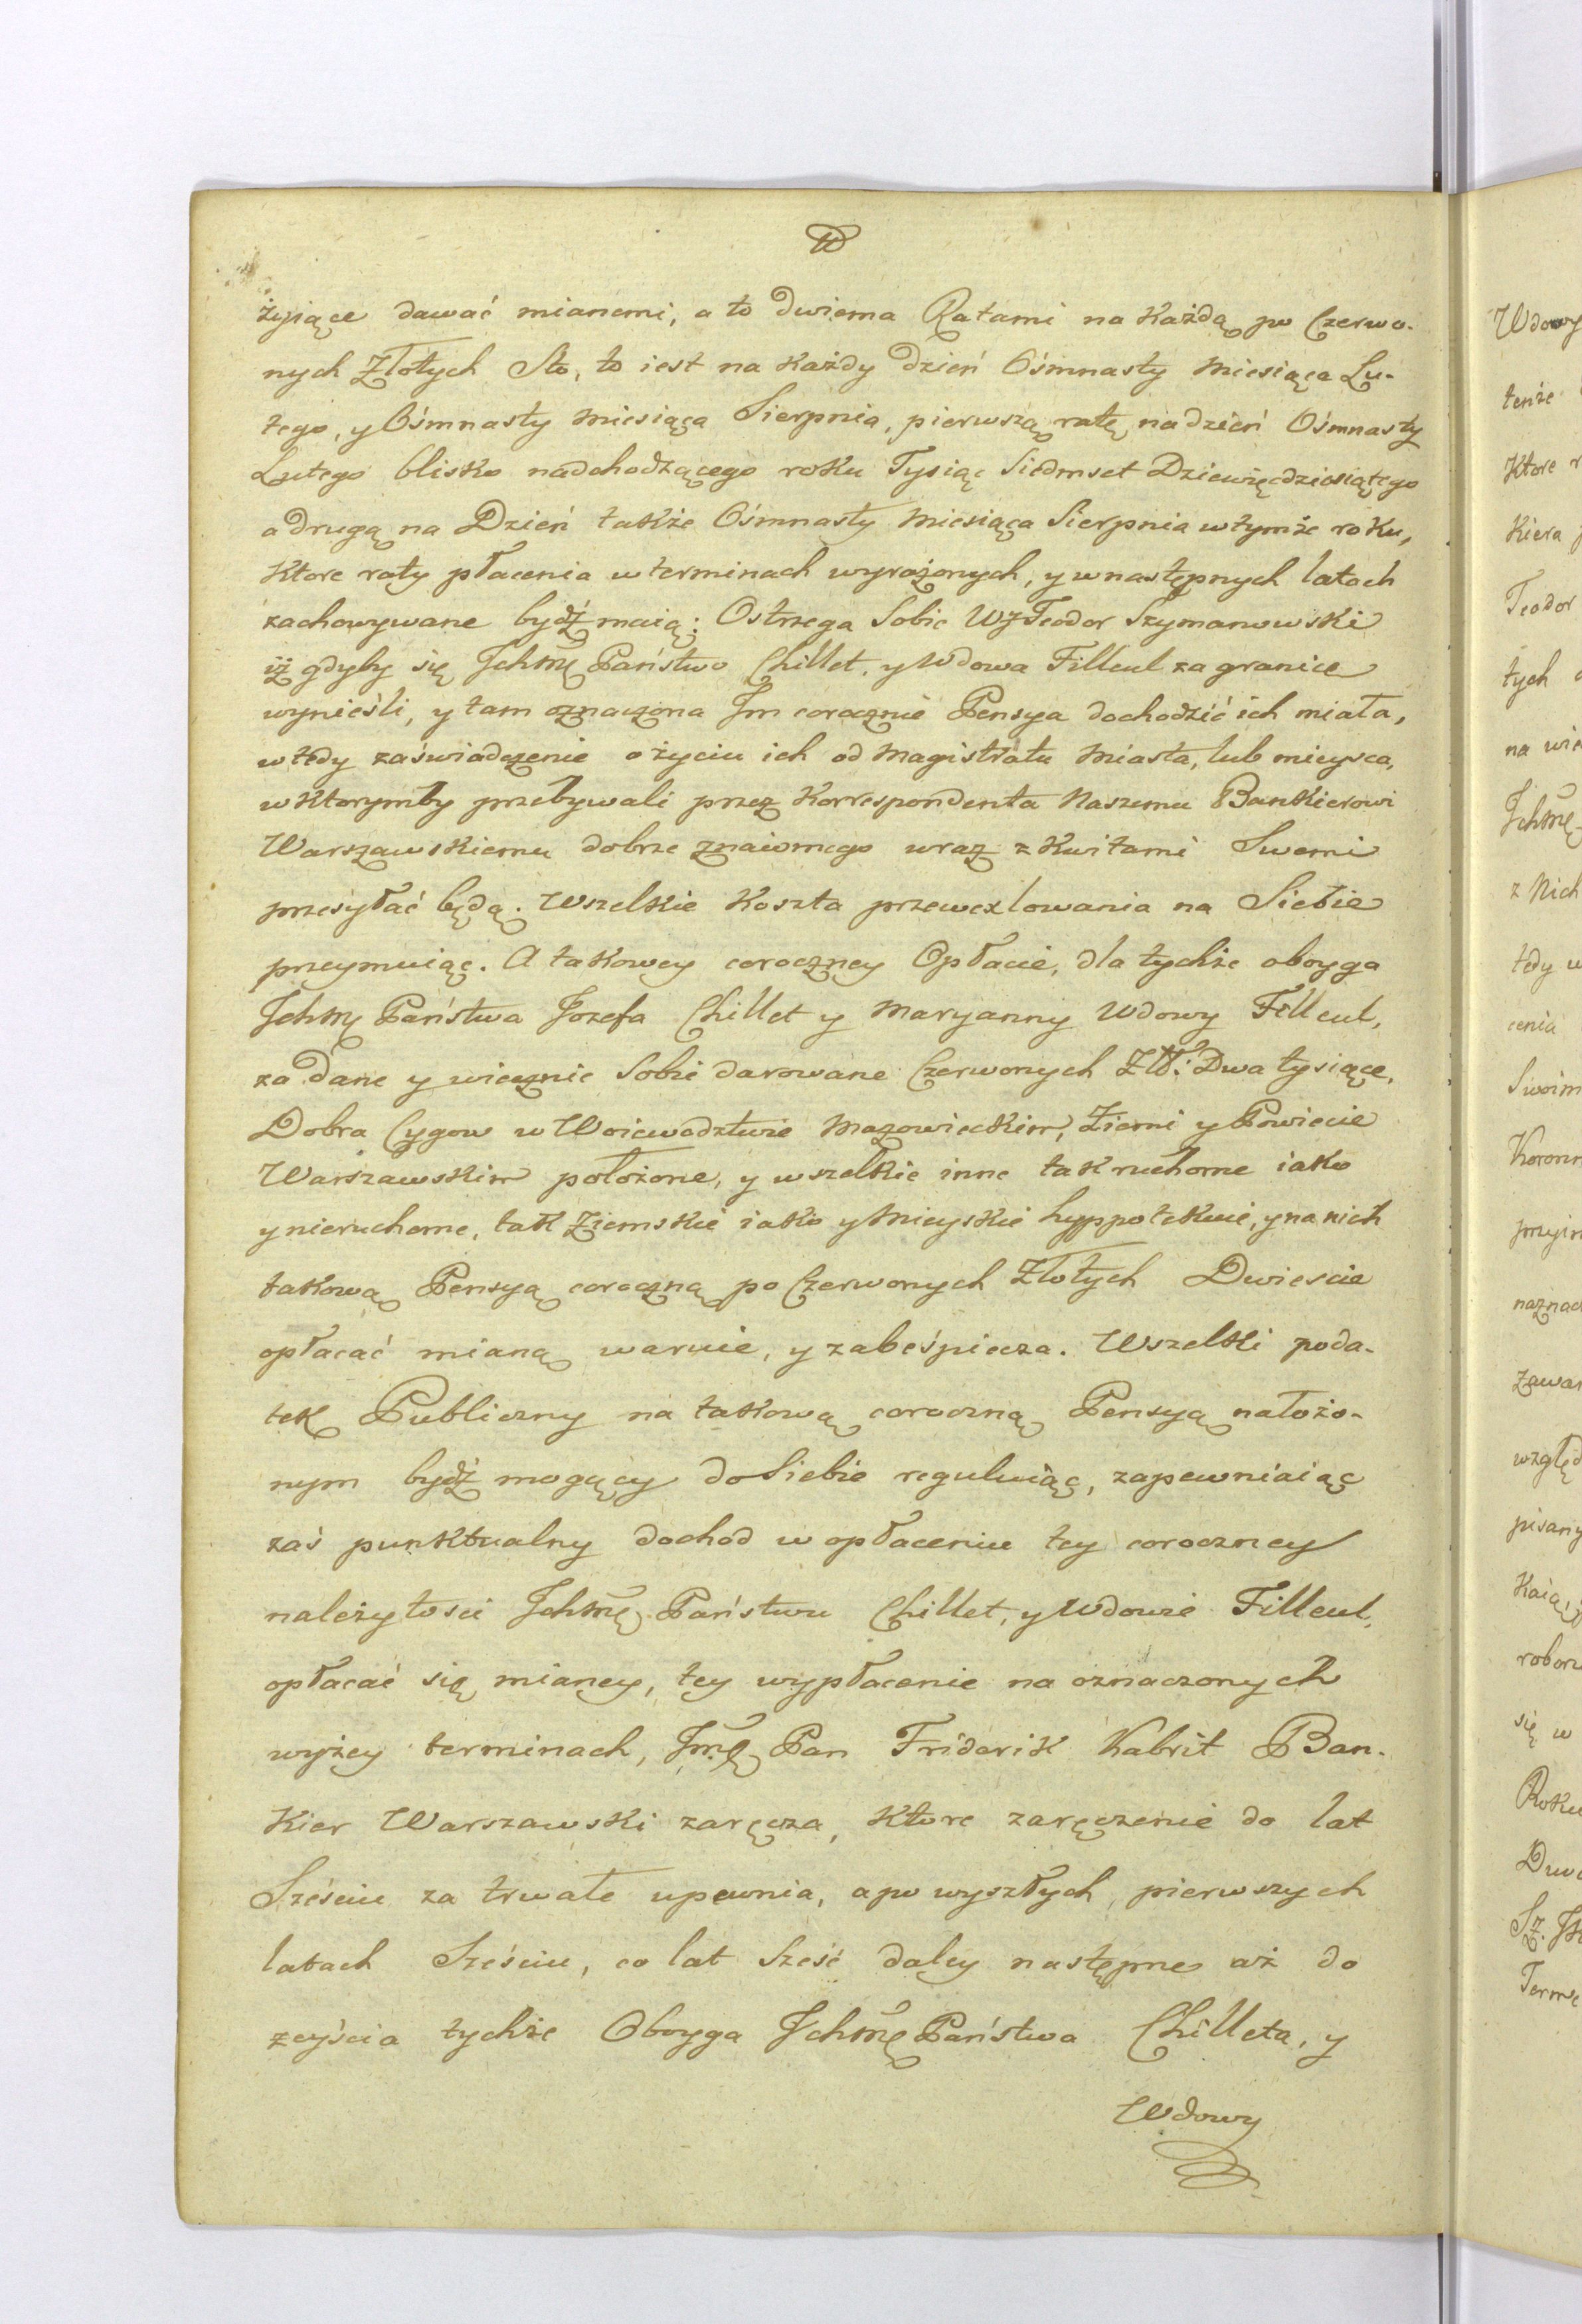 żyjące dawać mianemi, a to dwiema Ratami na każdą po Czerwo-
nych Złotych Sto, to iest na każdy dzień Ośmnasty Miesiąca Lu-
tego, y Ośmnasty Miesiąca Sierpnia, pierwszą ratę na dzień Ośmnasty
Lutego blisko nadchodzącego roku Tysiąc Siedmset Dziewięćdziesiątego
a drugą na Dzień także Ośmnasty Miesiąca Sierpnia w tymże roku,
ktore raty płacenia w terminach wyrażonych, y w następnych latach
zachowywane bydź maią: Ostrzega Sobie WJ Teodor Szymanowski
iż gdyby się Jchmę Państwo Chillet, y Wdowa Filleul za granice
wynieśli, y tam oznaczona Jm corocznie Pensya dochodzić ich miała,
wtedy zaświadczenie o życiu ich od Magistratu Miasta, lub mieysca,
w ktorymby przebywali przez Korrespondenta Naszemu Bankierowi
Warszawskiemu dobrze znaiomego wraz z kwitami Swemi
przesyłać będą. Wszelkie Koszta przewexlowania na Siebie
przeymuiąc. A takowey coroczney Opłacie, dla tychże oboyga
Jchmę Państwa Jozefa Chillet y Maryanny Wdowy Filleul,
za dane y wiecznie Sobie darowane Czerwonych Złł: Dwa tysiące,
Dobra Cygow w Woiewodztwie Mazowieckim, Ziemi y Powiecie
Warszawskim położone, y wszelkie inne tak ruchome iako
y nieruchome, tak Ziemskie iako y Mieyskie hyppotekuie, y na nich
takową Pensyą coroczną po Czerwonych Złotych Dwiescie
opłacać mianą waruie, y zabeśpiecza. Wszelki poda-
tek Publiczny na takową coroczną Pensyą nałożo-
nym bydź mogący do Siebie reguluiąc, zapewniaiąc
zaś punktualny dochod w opłaceniu tey coroczney
należytosci Jchmę Państwu Chillet, y Wdowie Filleul,
opłacać się mianey, tey wypłacenie na oznaczonych
wyżey terminach, Jmę Pan Friderik Kabrit Ban-
kier Warszawski zaręcza, ktore zaręczenie do lat
Sześciu za trwałe upewnia, a po wyszłych, pierwszych
latach Sześciu, co lat Sześć daley następne aż do
zeyścia tychże Oboyga Jchmę Państwa Chilleta, y
Wdowy
Wdowy
tenże
Ktore
Kiera
Teodor
tych
na
Jchmę
z Nich
tedy
cenia
Swoim
naznac
pisany
się w
Roku